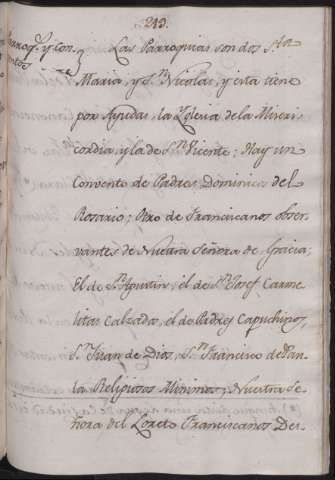 213.
Parroq.s y Con
ventos
Las Parroquias son dos S.ta
Maria, y S.n Nicolas, y esta tiene
por Ayudas, la Yglesia de la Miseri
cordia, y la de S.n Vicente; Hay un
Convento de Padres Dominicos del
Rosario; Otro de Franciscanos obser
vantes de Nuestra Señora de Gracia;
El de S.n Agustin, el de S.n Josef Carme
litas Calzados, el de Padres Capuchinos,
S.n Juan de Dios, S.n Francisco de Pau
la Religiosos Minimos; Nuestra Se
ñora del Loreto Franciscanos Des-